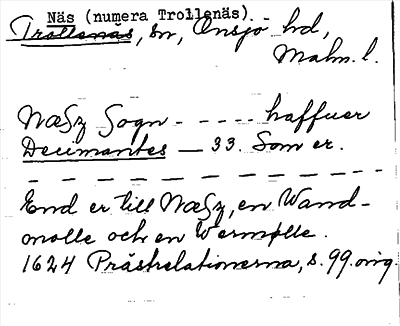 Näs (numera Trollenäs).
Trollenäs, sn, Onsjö hd,
Malm. l.
Næsz Sogn - - - - haffuer
Decimantes — 33. Som er.
— — — — — — — — — — —
End er till Næsz, en Wand-
mølle och en Wermølle.
1624 Prästrelationerna, s. 99. orig.